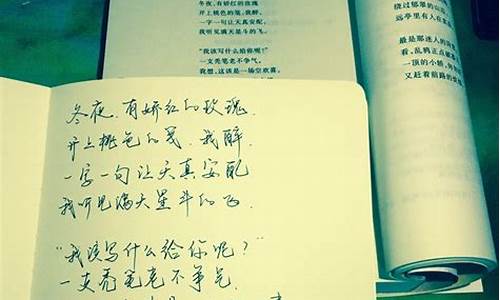 冬夜,有娇红的玫瑰
开上桃色的笺,我醉,
一字一句让天真安配
我听见满天星斗的飞.
"我该写什么给你呢?"
一支秃笔老不争气,
冬夜,有娇红的玫瑰
开上桃色的笺,我醉,
一字一句让天真安配,
我听见满天星斗的飞。
"我该写什么给你呢?"
一支秃笔老不争气,
我想,这该是一场空欢喜,
绕过郁翠的山
远亭里有人在
最是那迷人的
看,乱鸦正点
一顶的小轿,
又赶着前路的